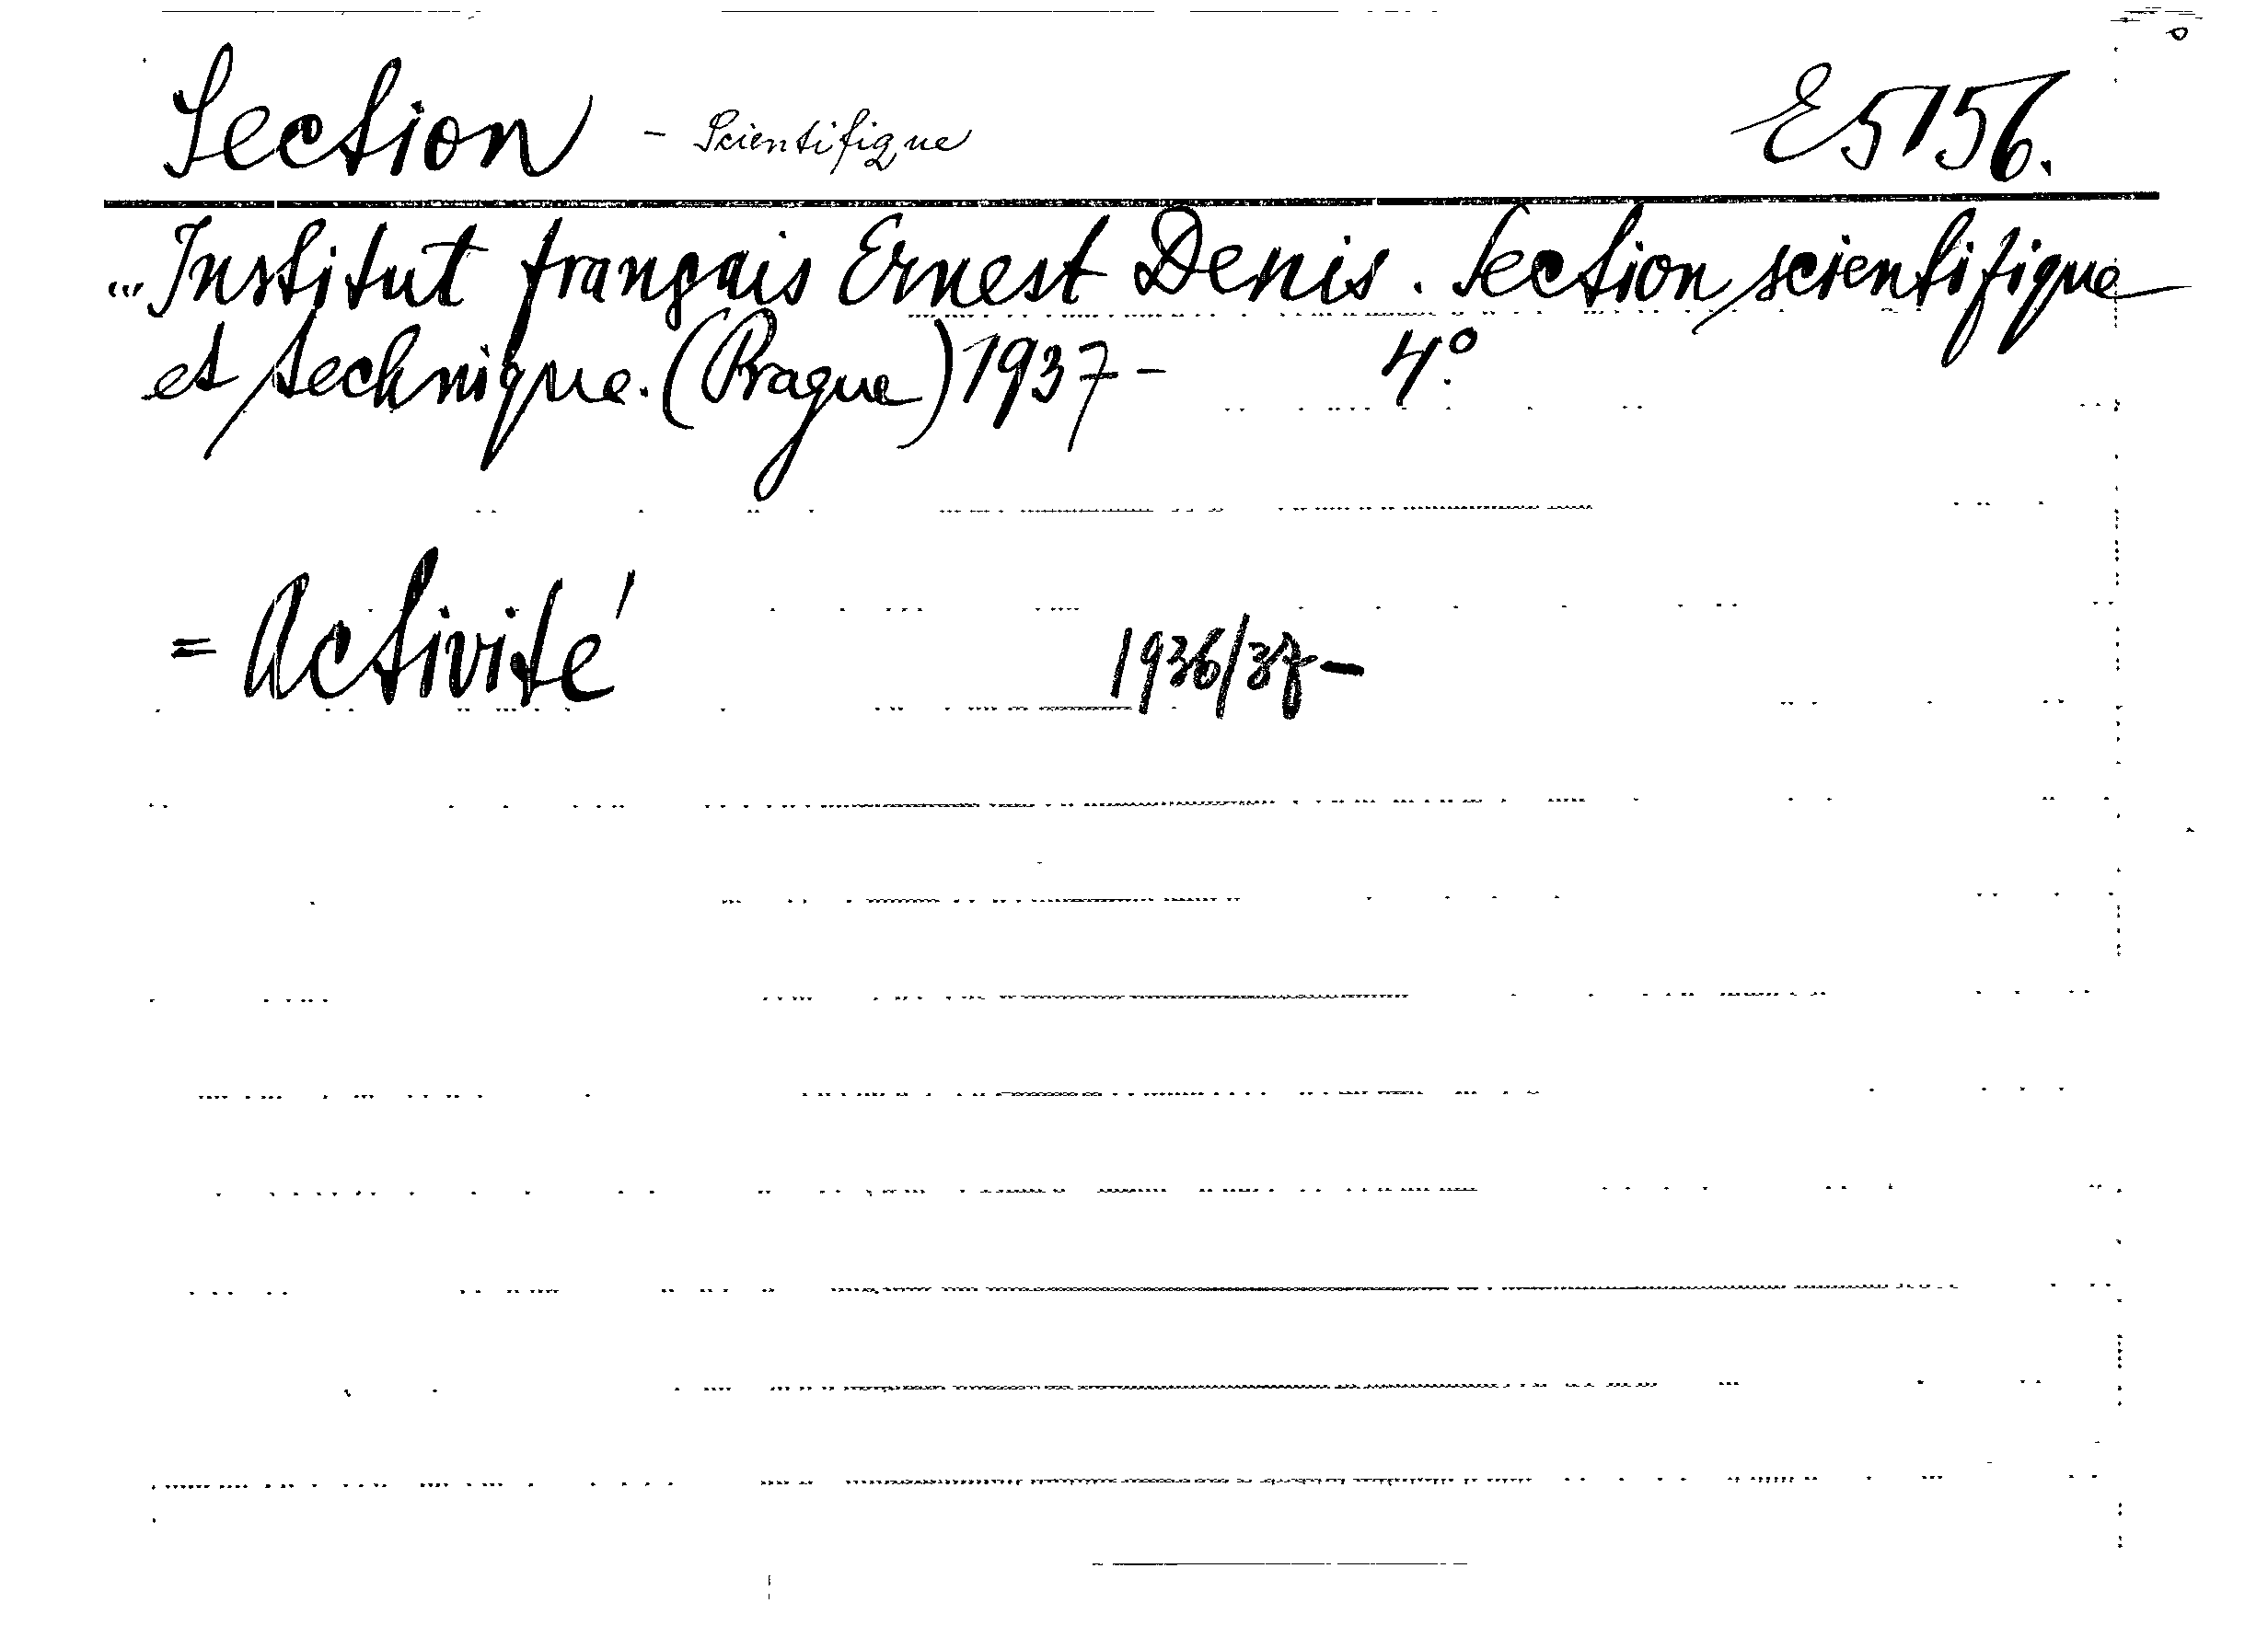 Section - Scientifique E5156.
... Institut français Ernest Denis. Section scientifique
et technique. (Prague) 1937- 4°.
= Activité 1936/37-